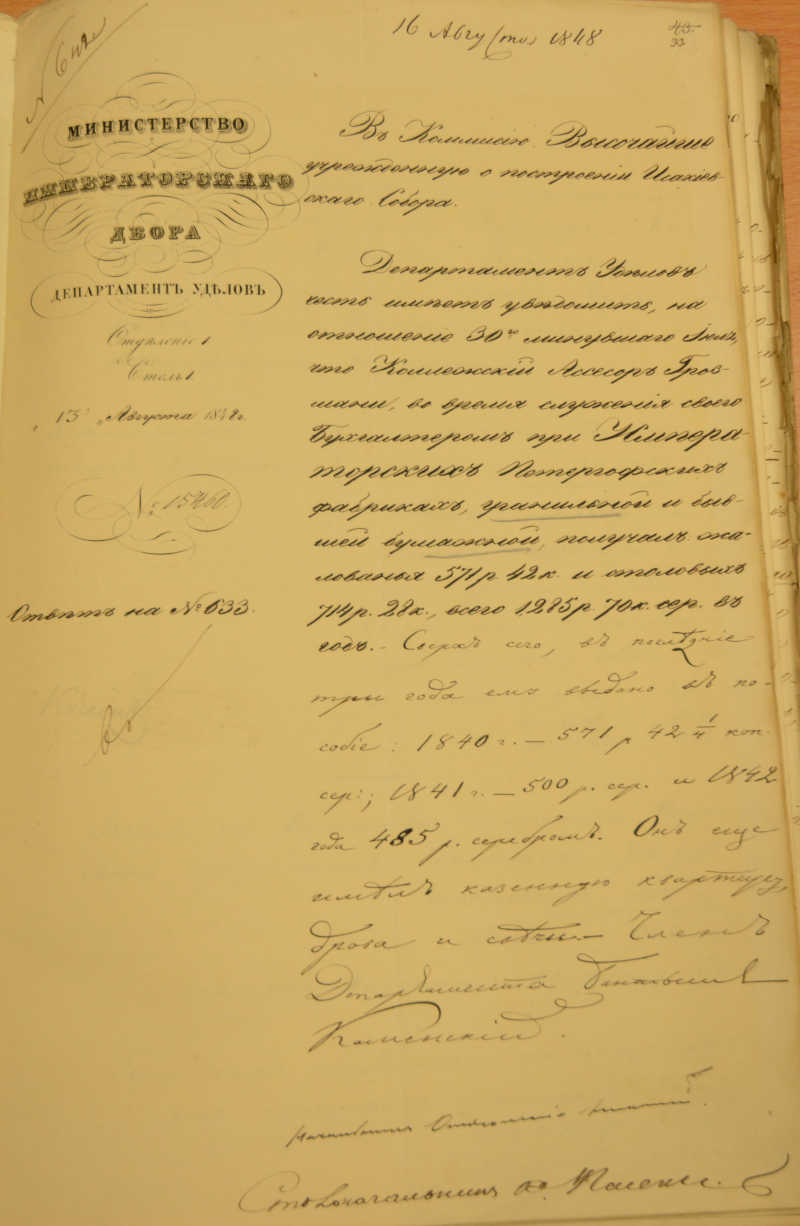 16 Августа 1848
43.
33
МИНИСТЕРСТВО
ИМПЕРАТОРСКАГО
ДВОРА
ДЕПАРТАМЕНТЪ УДѢЛОВЪ
Отдѣленіе 1
Столъ 1
13 Августа 1848 г.
№ 15460.
Отвѣтъ на № 633.
Въ Коммисію Высочайше
учрежденную о построеніи Исакіев-
скаго Собора.
Департаментъ Удѣловъ
честь имѣетъ увѣдомить, на
отношеніе 30го минувшаго Іюля,
что Коллежскій Ассесоръ
во время служенія своего
Бухгалтеромъ при Импера-
торскихъ Петергофскихъ
фабрикахъ, гранильной и быв-
шей бумажной, получалъ жа-
лованья 571 р. 42 к. и столовыхъ
714 р. 28 к., всего 1285 р. 70 к. сер. въ
годъ. - Сверхъ сего, въ послѣдніе
три года ему выдано въ по-
собіе: 1840 г. — 571 р. 42 1/4 коп.
сер.; 1841 г. — 500 р. сер. и 1842
года 485 р. серебромъ. Онъ еще
имѣлъ казенную квартиру,
дрова и свѣчи. — Членъ
Департамента
Каменскій.
Начальникъ Отдѣленія
Столоначальникъ